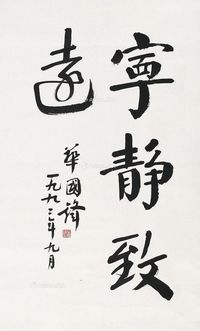 寧靜致
遠
華國鋒
一九九三年九月